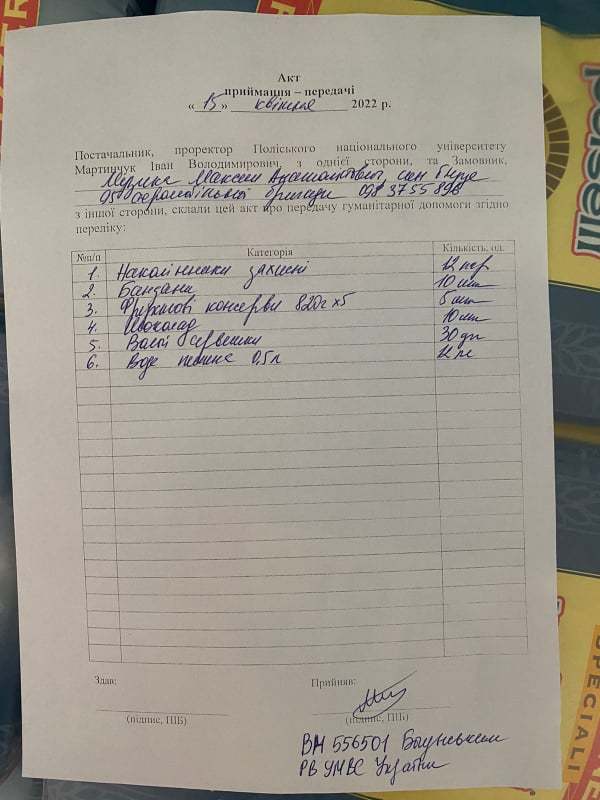 Акт
приймання – передачі
« 15 » квітня 2022 р.
Постачальник, проректор Поліського національного університету
Мартинчук Іван Володимирович з однієї сторони, та Замовник,
Максим Анатолійович,
95 бригади
з іншої сторони, склали цей акт про передачу гуманітарної допомоги згідно
переліку:
№п/п Категорія Кількість, од.
1. Наколінники захисні 12 пар
2. Бандани 10 шт
3. Фруктові консерви 820г х5 5 шт
4. Шоколад 10 шт
5. Вологі серветки 30
6. Вода питна 0,5л
Здав: Прийняв:
(підпис, ПІБ) (підпис, ПІБ)
ВМ 556501
РВ УМВС України
persil
SPECIALI